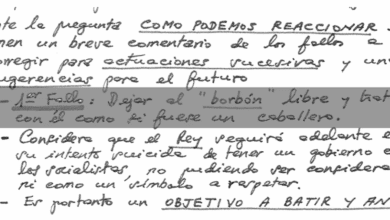 te la pregunta COMO PODEMOS REACCIONAR.
nen un breve comentario de los fallos a
orregir para actuaciones sucesivas y un
ugerencias para el futuro
- 1er Fallo: Dejar al "borbón" libre y trat
con él como si fuese un caballero.
- Considera que el Rey seguirá adelante e
su intento suicida de tener un gobierno c
los socialistas, no pudiendo ser considera
ni como un símbolo a respetar.
- Es portanto un OBJETIVO A BATIR Y AN